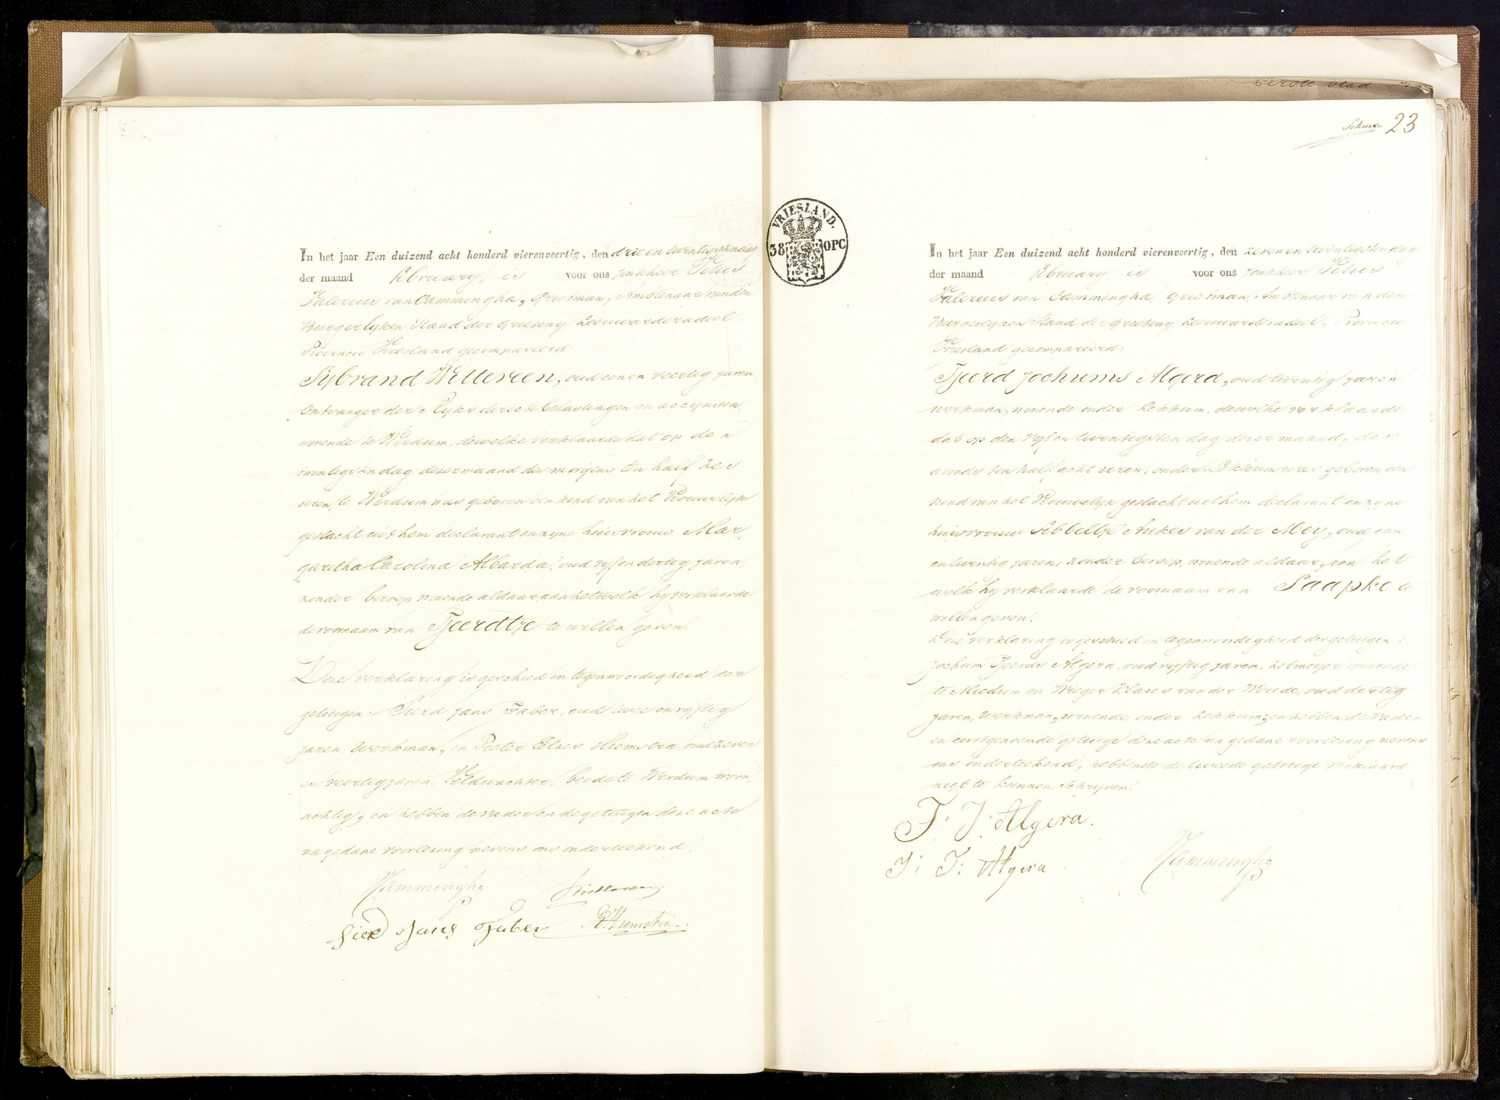 In het jaar Een duizend acht honderd vierenveertig, den drie en twintigsten dag
der maand february, is voor ons Jonkheer Felius
Valerius van Cammingha, Grietman, Ambtenaar van den
Burgerlijken Stand der Grieteny Leeuwarderadeel
Provincie Friesland gecompareerd
Sijbrand Wetterren, oud een en veertig jaren
Ontvanger der 's Ryks directe belastingen en accynsen,
wonende te Wirdum, dewelke verklaarde dat op den
twintigsten dag dezer maand des morgens ten half zes
uren, te Wirdum was geboren een kind van het Vrouwelijke
geslacht uit hem declarant en zyne huisvrouw Mar,
garetha Carolina Albarda, oud vyf en dertig jaren
zonder beroep wonende aldaar, aan hetwelk hy verklaarde
de voornaam van Tjeerdtje te willen geven
Deze verklaring is geschied in tegenwoordigheid der
getuigen Sierd Jans Faber, oud twee en vyftig
jaren Werkman, en Pieter Eelses Hiemstra oud zeven
en veertig jaren, Veldwachter, beide te Wirdum woon
achtig, en hebben de vader en de getuigen deze acte
na gedane voorlezing nevens ons onderteekend.
Cammingha
Sierd Jans Faber
P E Hiemstra
VRIESLAND.
38 OPC
23
In het jaar Een duizend acht honderd vierenveertig, den zeven en twintigsten dag
der maand february is voor ons Jonkheer Felius
Valerius van Cammingha, Grietman, Ambtenaar van den
Burgerlyken Stand der Grieteny Leeuwarderadeel, Provincie
Friesland gecompareerd:
Tjeerd Jochums Algera, oud twintig jaren
werkman, wonende onder Lekkum, dewelke verklaarde
dat op den vyf en twintigsten dag dezer maand, des
avonds ten half acht uren, onder was geboren een
kind van het Vrouwelyk geslacht uit hem declarant en zyne
huisvrouw Sibbeltje Ankes van der Mey, oud een
en twintig jaren, zonder beroep, wonende aldaar, aan het
welk hy verklaarde de voornaam van Saapke te
willen geven.
Deze verklaring is geschied in tegenwoordigheid der getuigen:
Jochum Tjeerds Algera, oud vyftig jaren, wonende
te Miedum en Klases van der Weide, oud dertig
jaren, Werkman, wonende onder Lekkum, en hebben de Vader
en eerstgenoemde getuige deze acte na gedane voorlezing nevens
ons onderteekend, hebbende de tweede getuige verklaard
niet te kunnen schryven.
T: J: Algera.
J: T: Algera
Cammingha